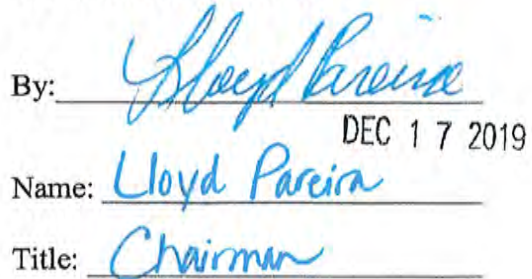 By: Lloyd Pareira
DEC 17 2019
Name: Lloyd Pareira
Title: Chairman